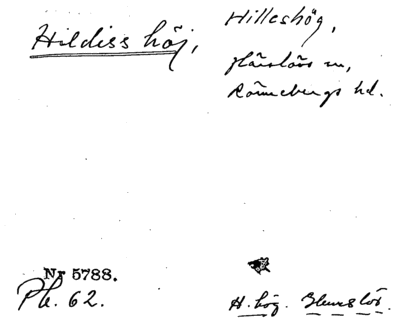 Hildiss höj,
Hilleshög,
Härslövs sn,
Rönnebergs hd.
Nr 5788.
Pl. 62.
H. hög.